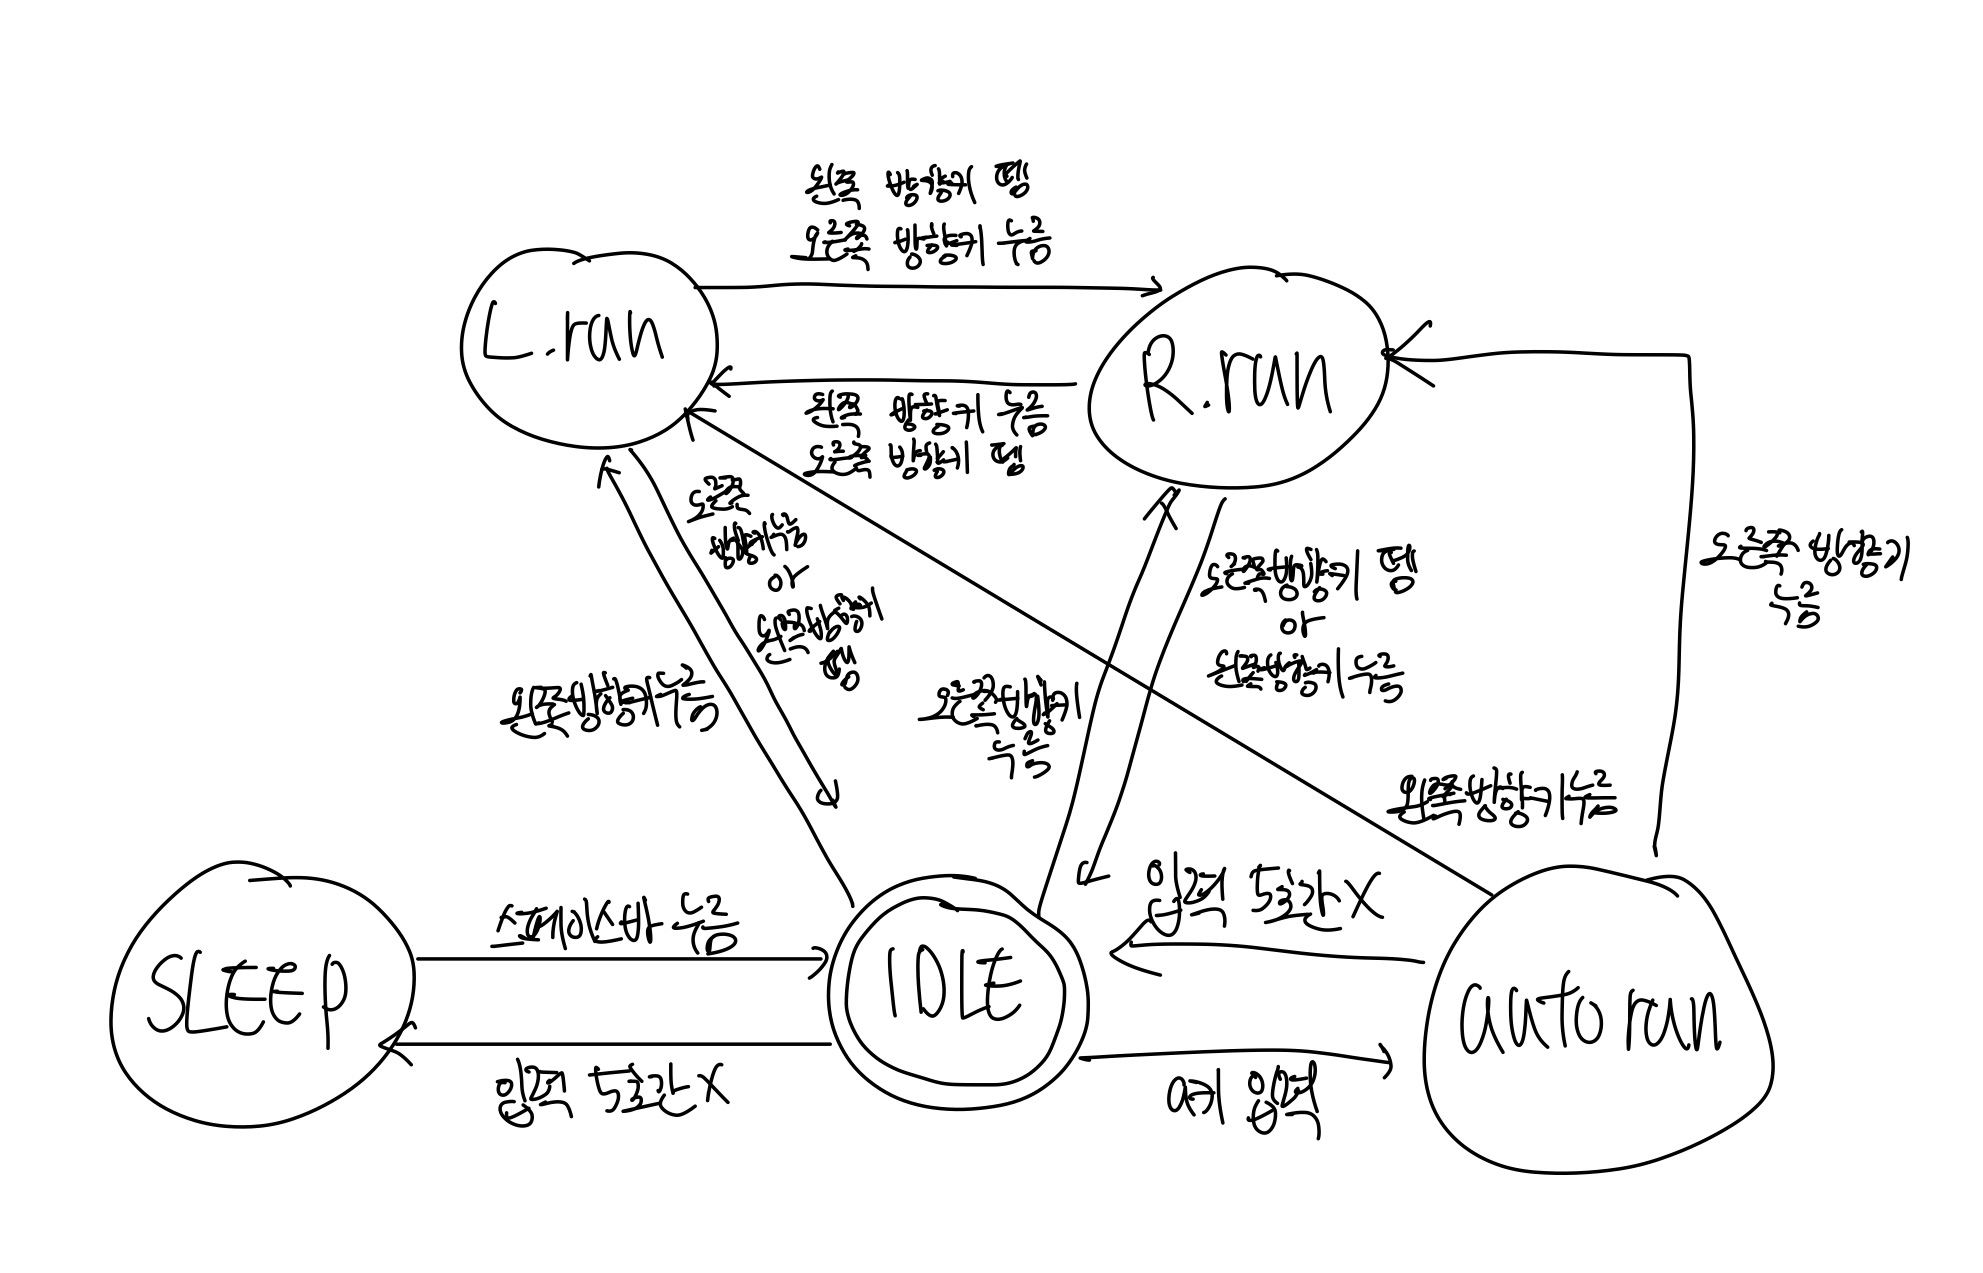 왼쪽 방향키 뗌
오른쪽 방향키 누름
L.ran
R.ran
왼쪽 방향키 누름
오른쪽 방향키 뗌
오른쪽
방향키누름
or
왼쪽방향키
뗌
왼쪽방향키누름
오른쪽방향키
누름
오른쪽방향키 뗌
or
왼쪽방향키누름
오른쪽 방향키
누름
왼쪽방향키누름
스페이스바 누름
입력 5초간 X
SLEEP
IDLE
auto ran
입력 5초간 X
a키 입력